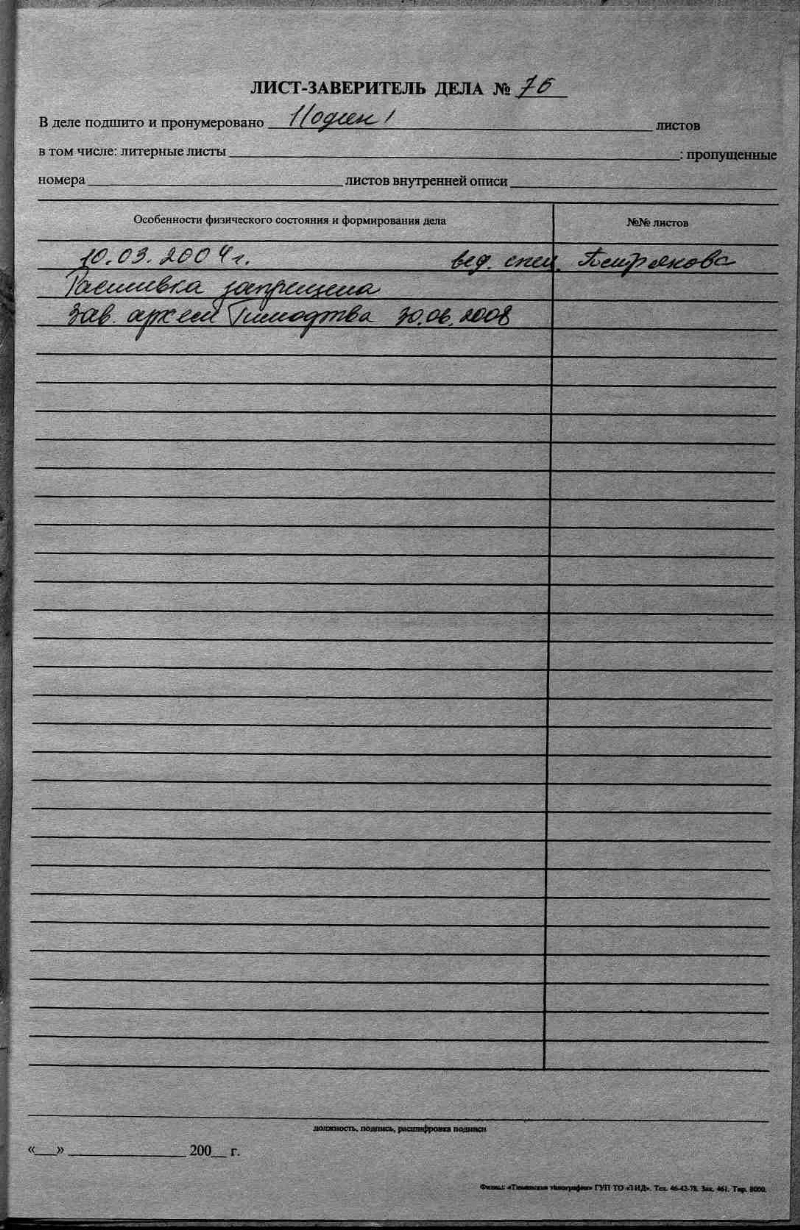 ЛИСТ-ЗАВЕРИТЕЛЬ ДЕЛА № 76
В деле подшито и пронумеровано 1/один/ листов
в том числе: литерные листы : пропущенные
номера листов внутренней описи
Особенности физического состояния и формирования дела №№ листов
10.03.2004 г. вед. спец.
зав. 30.06.2008
должность, подпись, расшифровка подписи
«__» 200__ г.
Филиал «Тюменская типография» ГУП ТО «ТИД». Тел. 46-43-78. Зак. 461. Тир. 8000.